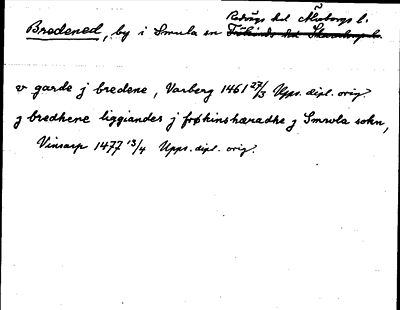 Redvägs hd Älvsborgs l.
Bredened, by i Smula sn Frökinds hd Skaraborgs l.
v garde j bredene, Varberg 1461 27/3 Upps. dipl. orig.
j bredhene liggiandes j frøkinshæradhe j Smwla sokn,
Vinsarp 1477 13/4 Upps. dipl. orig.